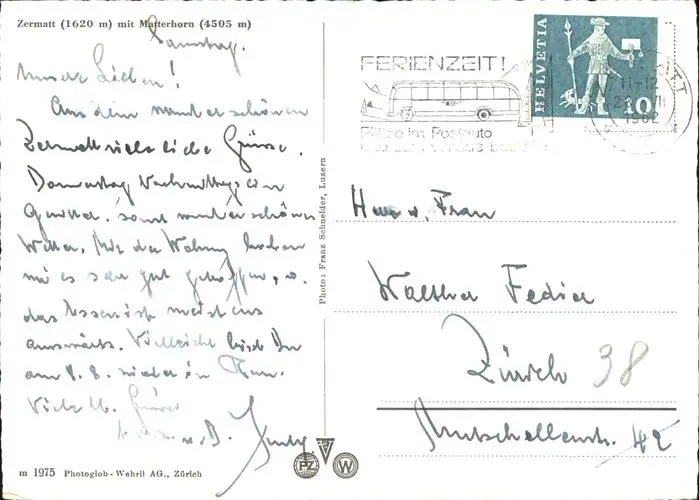 Zermatt (1620 m) mit Matterhorn (4505 m)
Samstag.
Unsere Lieben!
Aus dem wunderschönen
Zermatt viele liebe Grüsse.
Donnerstag Nachmittag ein
Gewitter, sonst wunderschönes
Wetter. Mit der Wohnung haben
wir es sehr gut getroffen, u.
das Essen ist meistens
auswärts. Vielleicht bist Du
am 8. 8. wieder in
Viele lb. Grüsse
u. B.
FERIENZEIT!
Plätze im Postauto
HELVETIA
10
11-12
1962
Photo: Franz Schneider, Luzern
Herr u. Frau
Walther Fedier
Zürich 38
Mutschellenstr. 42
PZ
W
m 1975 Photoglob-Wehrli AG., Zürich